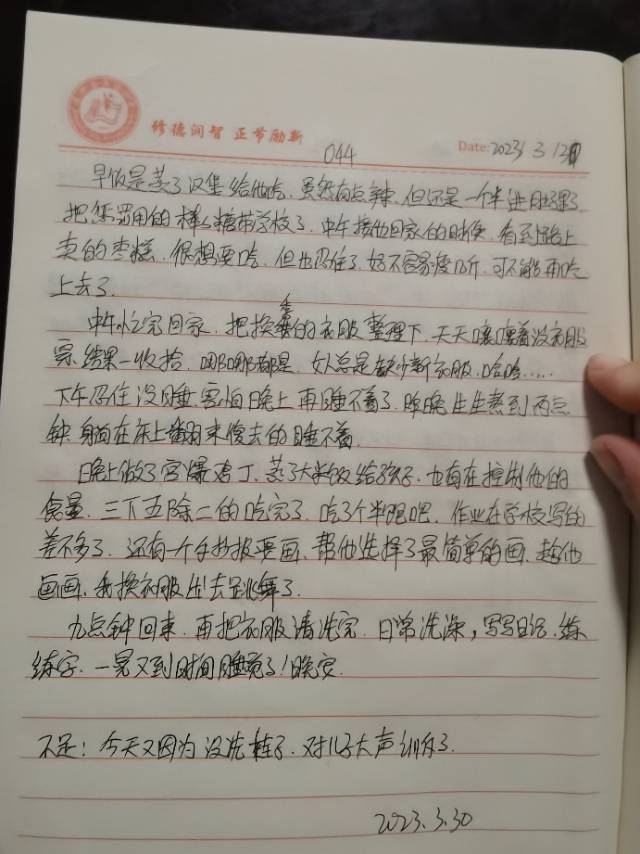 修德润智 正节励新
044
Date: 2023 3 12
早饭是蒸了汉堡给他吃, 虽然有点辣, 但还是一个半进肚了
把 用的棒棒糖带学校了, 中午接他回家的时候, 看到路上
卖的枣糕, 很想要吃, 但也忍住了, 好不容易瘦几斤, 可不能再吃
上去了.
中午忙完回家, 把换季的衣服整理下, 天天嚷嚷着没衣服
穿, 结果一收拾, 哪哪都是, 女人总是缺少新衣服, 哈哈.....
下午忍住没睡, 害怕晚上再睡不着了, 昨晚生生熬到两点
钟, 躺在床上翻来覆去的睡不着.
晚上做了宫爆鸡丁, 蒸了大米饭给孩子, 也有在控制他的
食量, 三下五除二的吃完了, 吃了个半饱吧, 作业在学校写的
差不多了, 还有一个手抄报要画, 帮他选择了最简单的画, 趁他
画画, 我换衣服出去跳舞了.
九点钟回来, 再把衣服清洗完, 日常洗漱, 写写日记, 练
练字, 一晃又到时间睡觉了! 晚安.
不足: 今天又因为没洗 子, 对儿子大声训斥了.
2023.3.30